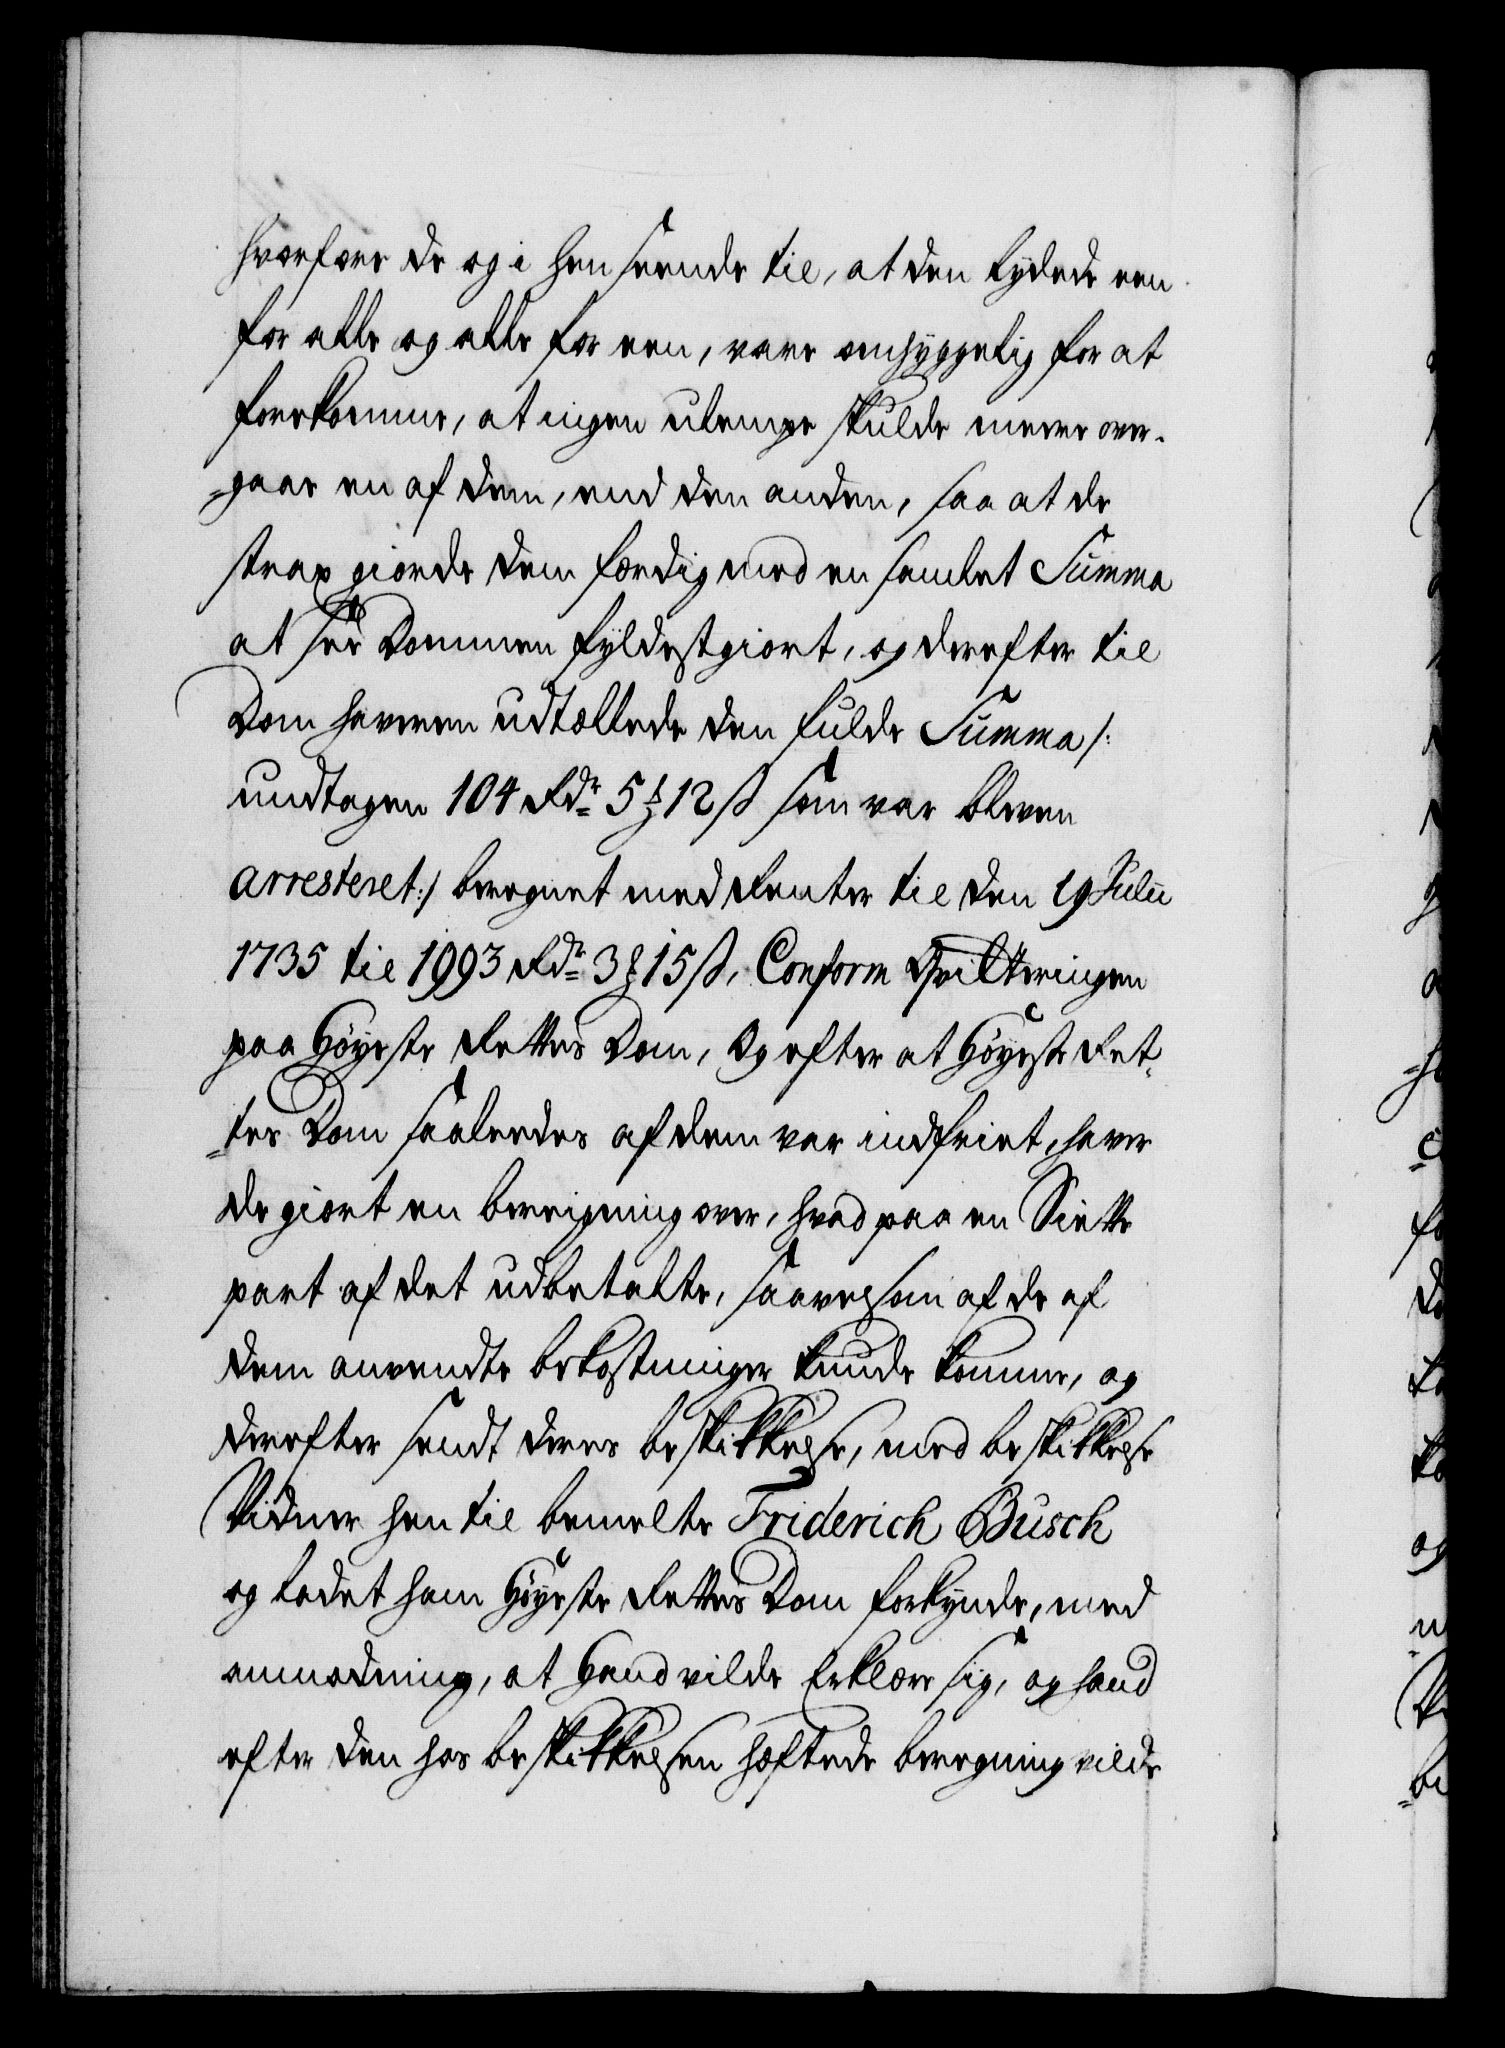 hvorfore de og i hen seende til, at den lydede een
for alle og alle for een, vare omhyggelig for at
forekomme, at ingen ulempe skulde meere over-
=gaae en af dem, end den anden, saa at de
strax giorde dem færdig med en samlet Summa
at see Dommen fyldestgiort, og derefter til
Domhaveren udtællede den fulde Summa /:
undtagen 104 Rdr 5 ꝟ 12 ß som var bleven
arresteret :/ beregnet med Renter til den 19 Julii
1735 til 1993 Rdr 3 ꝟ 15 ß, Conform Qvitteringen
paa Höyeste Rettes Dom, Og efter at Höyeste Ret-
=tes Dom saaledes af dem var indfriet, haver
de giort en bereigning over, hvad paa en Siette
part af det udbetalte, saavelsom af de af
dem anvendte bekostninger kunde komme, og
derefter sendt deres beskikkelse, med beskikkelse
Vidner hen til bemelte Friderich Busch
og ladet ham Höyeste Rettes Dom forkynde, med
anmodning, at Hand vilde Erklære sig, og hand
efter den hos beskikkelsen hæftede beregning vilde